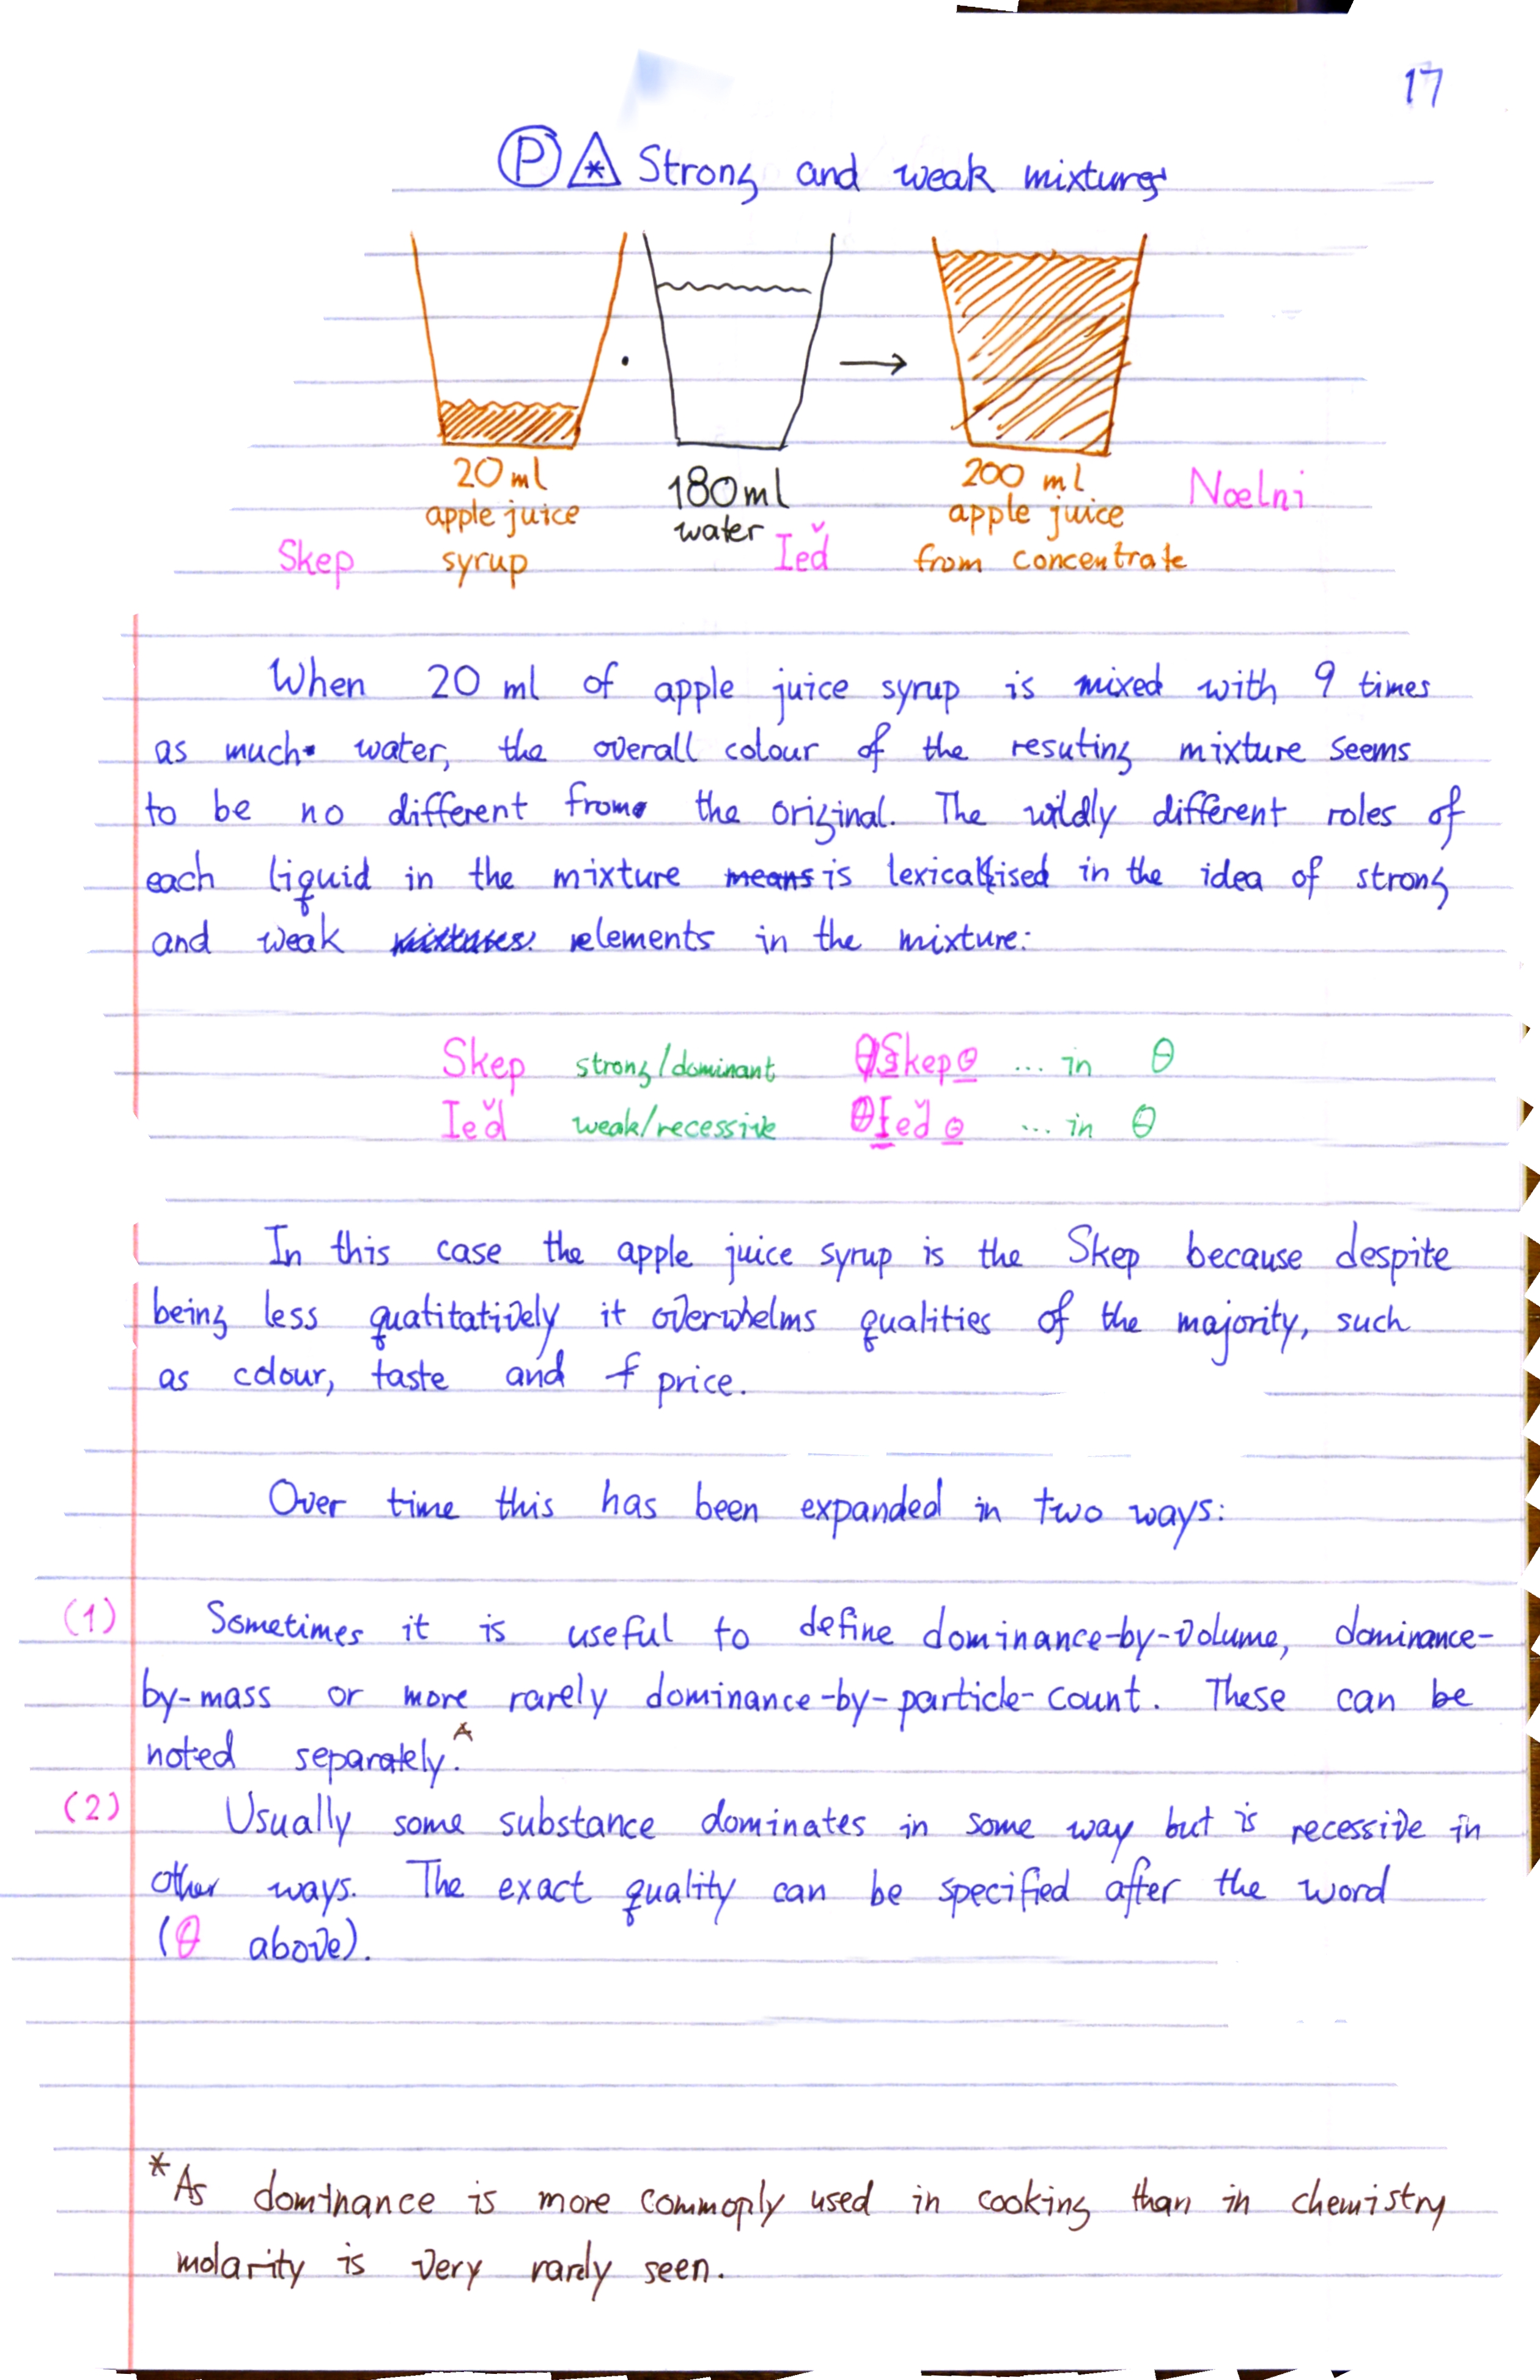 17
Ⓟ Strong and weak mixtures
20 ml
apple juice
syrup
Skep
180ml
water
Ieď
200 ml
apple juice
from concentrate
Nœlni
When 20 ml of apple juice syrup is mixed with 9 times
as much water, the overall colour of the resuting mixture seems
to be no different from the original. The wildly different roles of
each liquid in the mixture means is lexicalised in the idea of strong
and weak mixtures elements in the mixture:
Skep strong/dominant θSkepθ ... in θ
Ieď weak/recessive θIeďθ ... in θ
In this case the apple juice syrup is the Skep because despite
being less quatitatively it overwhelms qualities of the majority, such
as colour, taste and f price.
Over time this has been expanded in two ways:
(1) Sometimes it is useful to define dominance-by-volume, dominance-
by-mass or more rarely dominance-by-particle-count. These can be
noted separately.*
(2) Usually some substance dominates in some way but is recessive in
other ways. The exact quality can be specified after the word
(θ above).
*As dominance is more commonly used in cooking than in chemistry
molarity is very rarely seen.